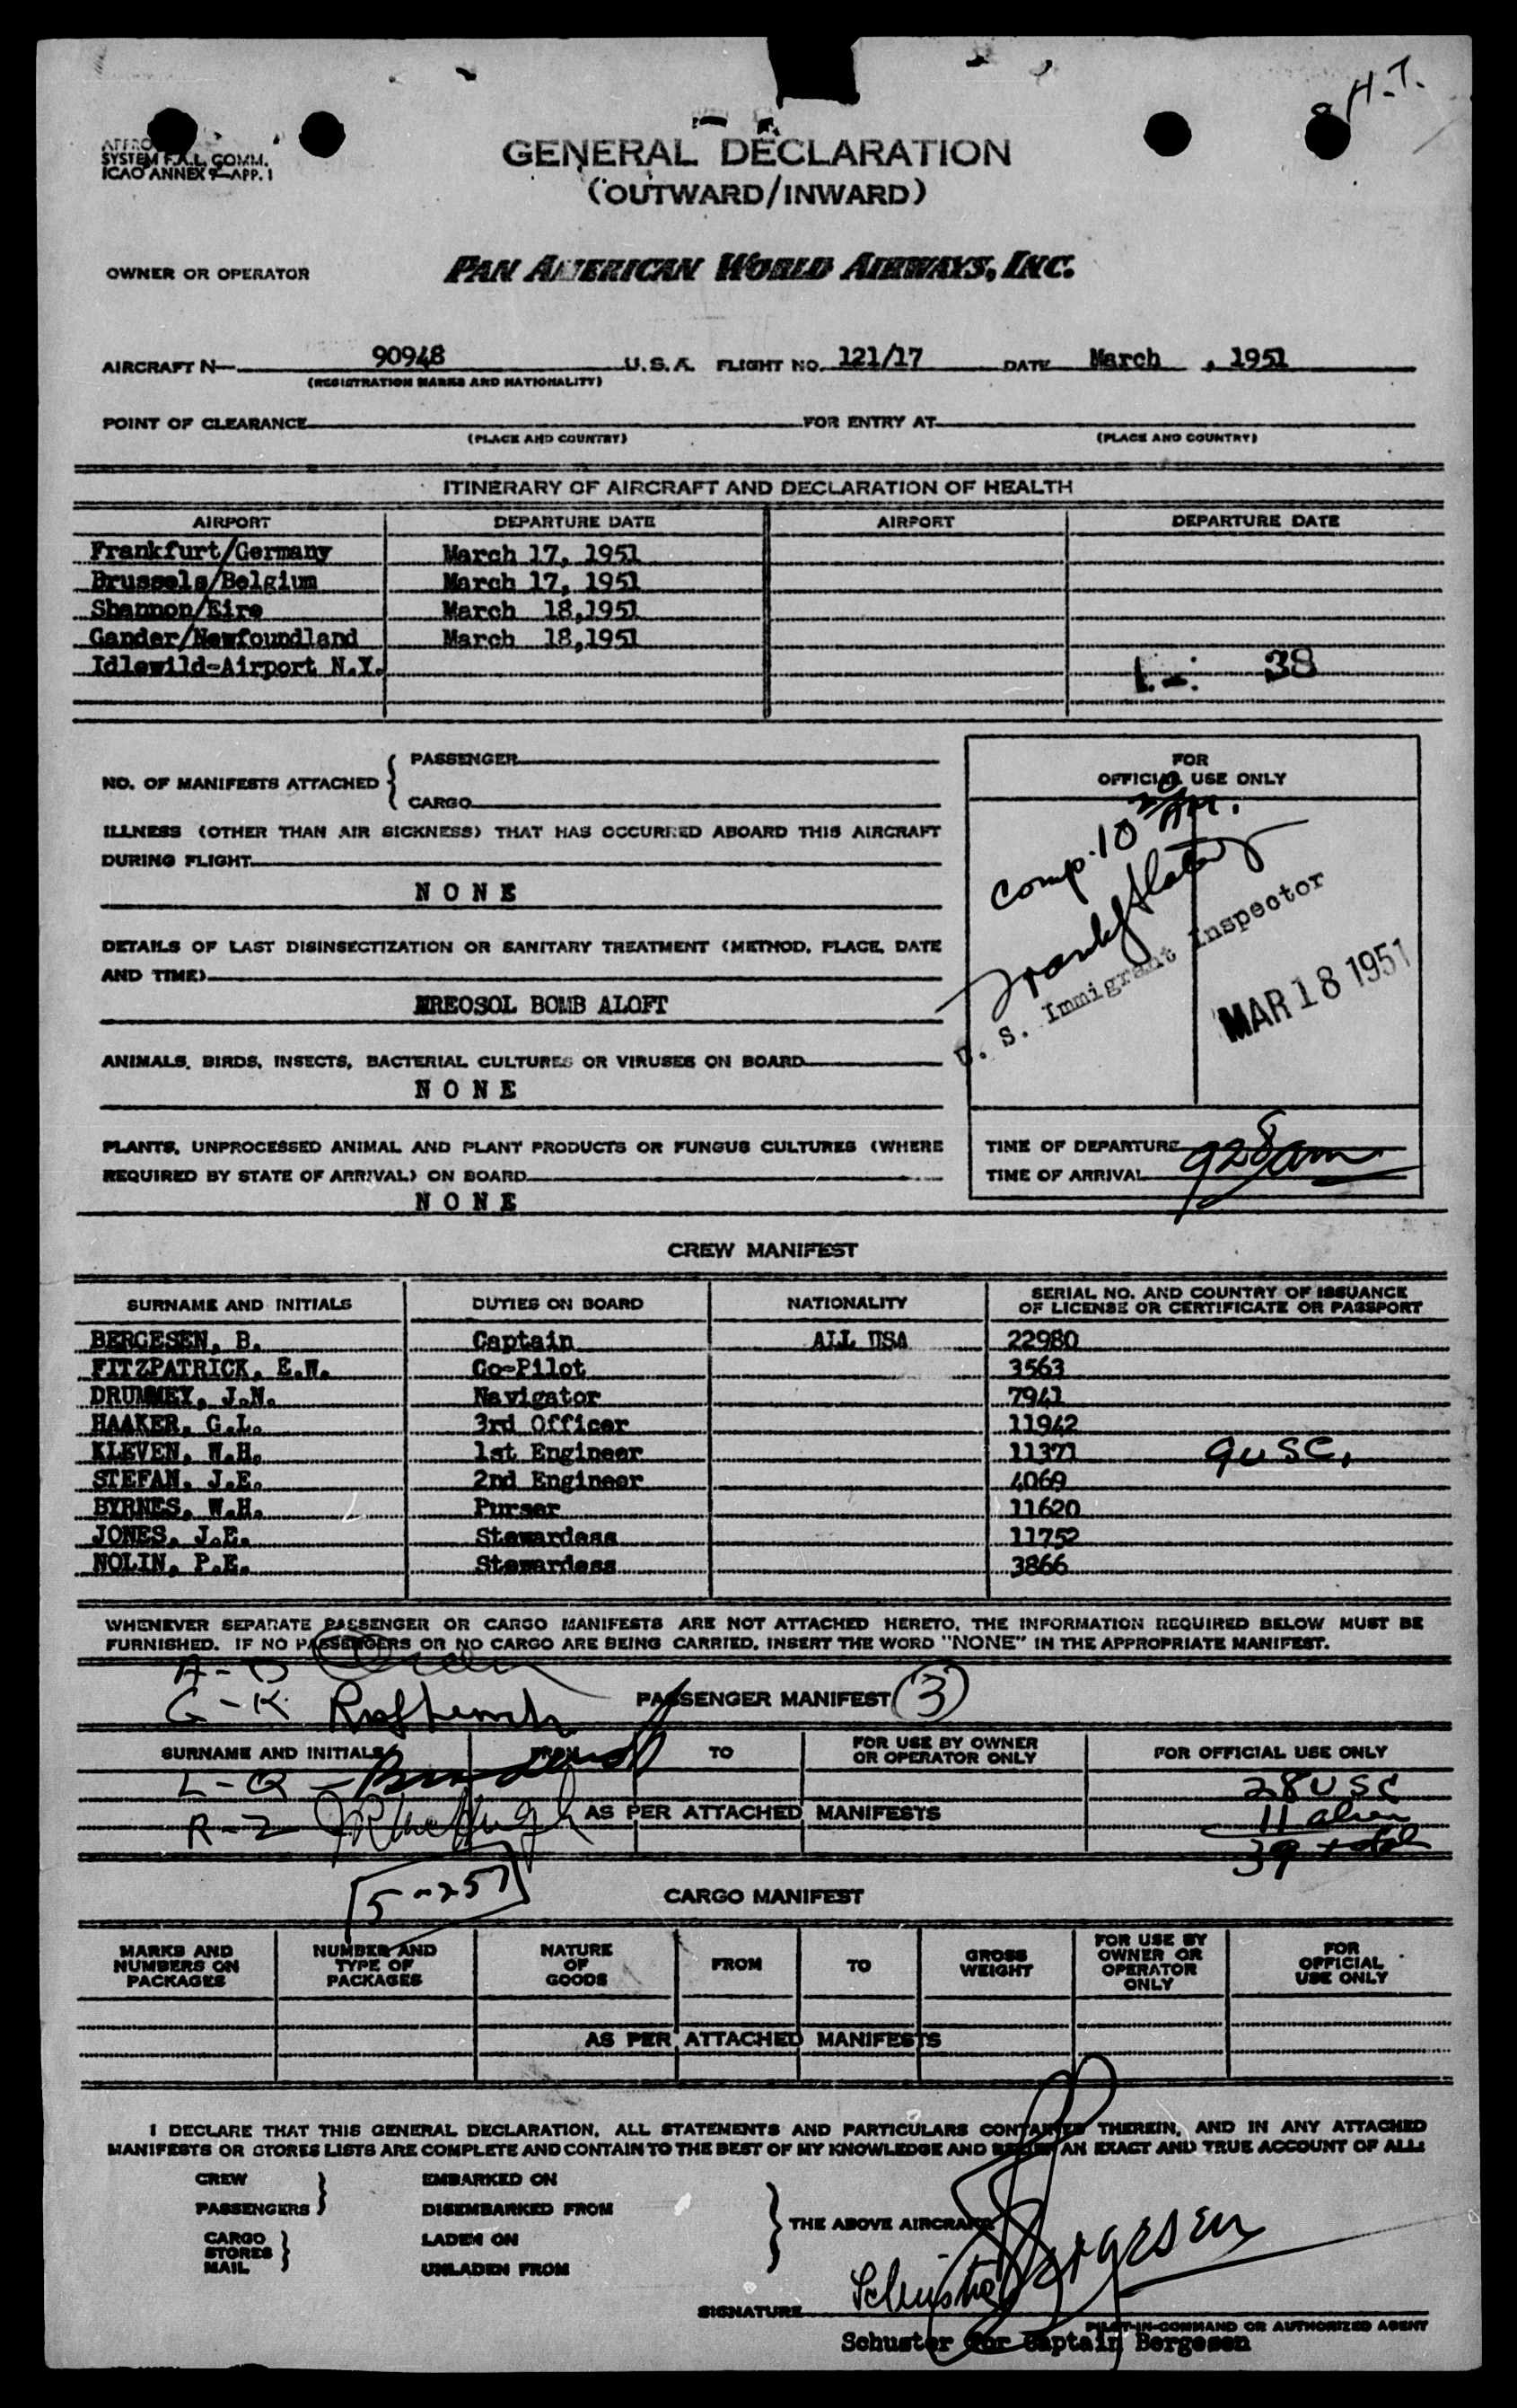 H.T.
SYSTEM F.A.L. COMM.
ICAO ANNEX 9-APP. 1
GENERAL DECLARATION
(OUTWARD/INWARD)
OWNER OR OPERATOR PAN AMERICAN WORLD AIRWAYS, INC.
AIRCRAFT N 90948 U.S.A. FLIGHT NO. 121/17 DATE March , 1951
(REGISTRATION MARKS AND NATIONALITY)
POINT OF CLEARANCE FOR ENTRY AT
(PLACE AND COUNTRY) (PLACE AND COUNTRY)
ITINERARY OF AIRCRAFT AND DECLARATION OF HEALTH
AIRPORT DEPARTURE DATE AIRPORT DEPARTURE DATE
Frankfurt/Germany March 17, 1951
Brussels/Belgium March 17, 1951
Shannon/Eire March 18,1951
Gander/Newfoundland March 18,1951
Idlewild-Airport N.Y.
38
NO. OF MANIFESTS ATTACHED { PASSENGER
CARGO
ILLNESS (OTHER THAN AIR SICKNESS) THAT HAS OCCURRED ABOARD THIS AIRCRAFT
DURING FLIGHT
N O N E
DETAILS OF LAST DISINSECTIZATION OR SANITARY TREATMENT (METHOD, PLACE, DATE
AND TIME)
AREOSOL BOMB ALOFT
ANIMALS, BIRDS, INSECTS, BACTERIAL CULTURES OR VIRUSES ON BOARD
N O N E
PLANTS, UNPROCESSED ANIMAL AND PLANT PRODUCTS OR FUNGUS CULTURES (WHERE
REQUIRED BY STATE OF ARRIVAL) ON BOARD
N O N E
FOR
OFFICIAL USE ONLY
Comp. 10 20 AM.
U. S. Immigrant Inspector
MAR 18 1951
TIME OF DEPARTURE
TIME OF ARRIVAL 928 am
CREW MANIFEST
SURNAME AND INITIALS DUTIES ON BOARD NATIONALITY SERIAL NO. AND COUNTRY OF ISSUANCE
OF LICENSE OR CERTIFICATE OR PASSPORT
BERGESEN, B. Captain ALL USA 22980
FITZPATRICK, E.W. Co-Pilot 3563
DRUMMEY, J.N. Navigator 7941
HAAKER, G.L. 3rd Officer 11942
KLEVEN, W.H. 1st Engineer 11371 9 USC,
STEFAN, J.E. 2nd Engineer 4069
BYRNES, W.H. Purser 11620
JONES, J.E. Stewardess 11752
NOLIN, P.E. Stewardess 3866
WHENEVER SEPARATE PASSENGER OR CARGO MANIFESTS ARE NOT ATTACHED HERETO, THE INFORMATION REQUIRED BELOW MUST BE
FURNISHED. IF NO PASSENGERS OR NO CARGO ARE BEING CARRIED, INSERT THE WORD "NONE" IN THE APPROPRIATE MANIFEST.
G-K
PASSENGER MANIFEST (3)
SURNAME AND INITIALS FROM TO FOR USE BY OWNER
OR OPERATOR ONLY FOR OFFICIAL USE ONLY
L-Q
28 USC
R-Z AS PER ATTACHED MANIFESTS 11 alien
39 total
[5-257]
CARGO MANIFEST
MARKS AND
NUMBERS ON
PACKAGES
NUMBER AND
TYPE OF
PACKAGES
NATURE
OF
GOODS
FROM
TO
GROSS
WEIGHT
FOR USE BY
OWNER OR
OPERATOR
ONLY
FOR
OFFICIAL
USE ONLY
AS PER ATTACHED MANIFESTS
I DECLARE THAT THIS GENERAL DECLARATION, ALL STATEMENTS AND PARTICULARS CONTAINED THEREIN, AND IN ANY ATTACHED
MANIFESTS OR STORES LISTS ARE COMPLETE AND CONTAIN TO THE BEST OF MY KNOWLEDGE AND BELIEF AN EXACT AND TRUE ACCOUNT OF ALL:
CREW EMBARKED ON
PASSENGERS DISEMBARKED FROM
THE ABOVE AIRCRAFT
CARGO LADEN ON
STORES
MAIL UNLADEN FROM
SIGNATURE Schuster Bergesen
PILOT-IN-COMMAND OR AUTHORIZED AGENT
Schuster for Captain Bergesen